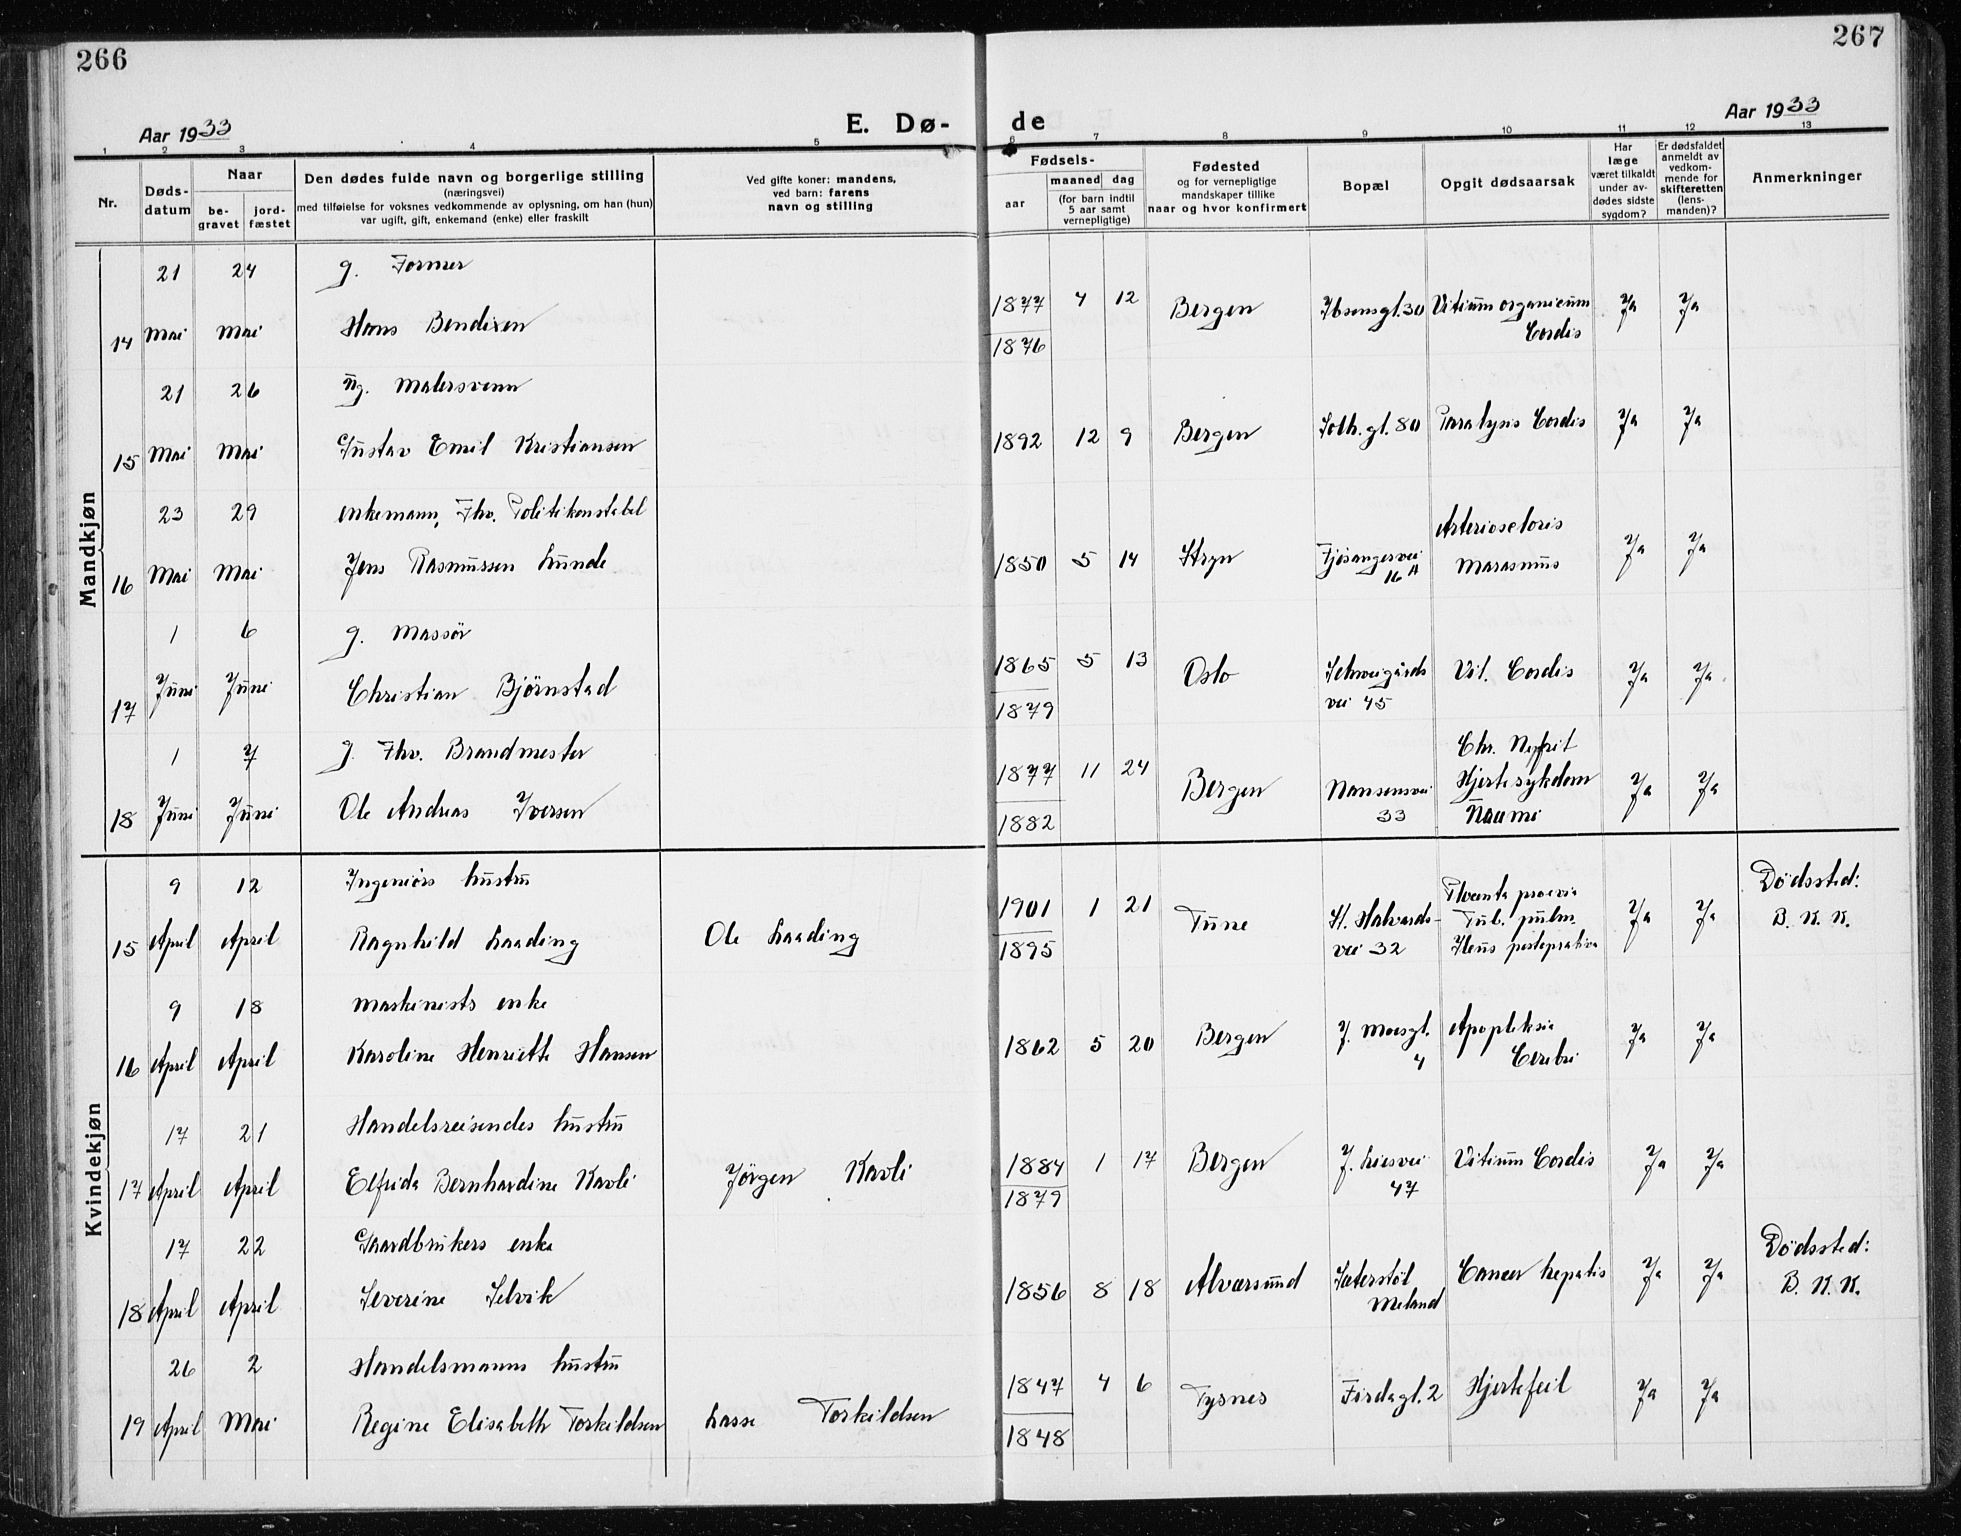 266
267
Aar 1933
E. Dø-
de
Aar 1933
1 2 3 4 5 6 7 8 9 10 11 12 13
Nr.
Døds-
datum
Naar
be-
gravet
jord-
fæstet
Den dødes fulde navn og borgerlige stilling
(næringsvei)
med tilføielse for voksnes vedkommende av oplysning, om han (hun)
var ugift, gift, enkemand (enke) eller fraskilt
Ved gifte koner: mandens,
ved barn: farens
navn og stilling
Fødsels-
aar
maaned dag
(for barn indtil
5 aar samt
vernepligtige)
Fødested
og for vernepligtige
mandskaper tillike
naar og hvor konfirmert
Bopæl
Opgit dødsaarsak
Har
læge
været tilkaldt
under av-
dødes sidste
sygdom?
Er dødsfaldet
anmeldt av
vedkom-
mende for
skifteretten
(lens-
manden)?
Anmerkninger
Mandkjøn
21 24 g. Former
14 Mai Mai Hans Bendixen
1877 4 12 Bergen Ibsensgt. 30 Vitium organicum Ja Ja
1876 Cordis
21 26 ug. Malersvenn
15 Mai Mai Gustav Emil Kristiansen
1892 12 9 Bergen Solh. gt. 80 Paralysis Cordis Ja Ja
23 29 enkemann, Fhv. Politikonstabel
16 Mai Mai Jens Rasmussen Lunde
Arterioscloris
1850 5 14 Stryn Fjøsangervei Marasmus Ja Ja
16 A
1 6 g. Massør
17 Juni Juni Christian Bjørnstad
1865 5 13 Oslo Schweigårds Vit. Cordis Ja Ja
1879 vei 45
1 7 g. Fhv. Brandmester
18 Juni Juni Ole Andreas Iversen
Chr. Nefrit
1877 11 24 Bergen Nansensvei Hjertesykdom Ja Ja
1882 33
Kvindekjøn
9 12 Ingeniørs hustru
15 April April Ragnhild Laading Ole Laading
Placenta praevia Dödssted:
1901 1 21 Tune St. Halvards- Tub. pulm. Ja Ja B. K. K.
1895 vei 32 Ileus
9 18 Maskinists enke
16 April April Karoline Henriette Hansen
1862 5 20 Bergen J. Moesgt. Apopleksia Ja Ja
4 Cerebri
17 21 Handelsreisendes hustru
17 April April Elfrida Bernhardine Kavli Jørgen Kavli
1884 1 17 Bergen J. Liesvei Vitium Cordis Ja Ja
1879 47
17 22 Gaardbrukers enke
18 April April Severine Selvik
Dödssted:
1856 8 18 Alversund Sæterstøl Cancer hepatis Ja Ja B. K. K.
Meland
26 2 Handelsmanns hustru
19 April Mai Regine Elisabeth Torkildsen Lasse Torkildsen
1847 4 6 Tysnes Firdagt. 2 Hjertefeil Ja Ja
1848